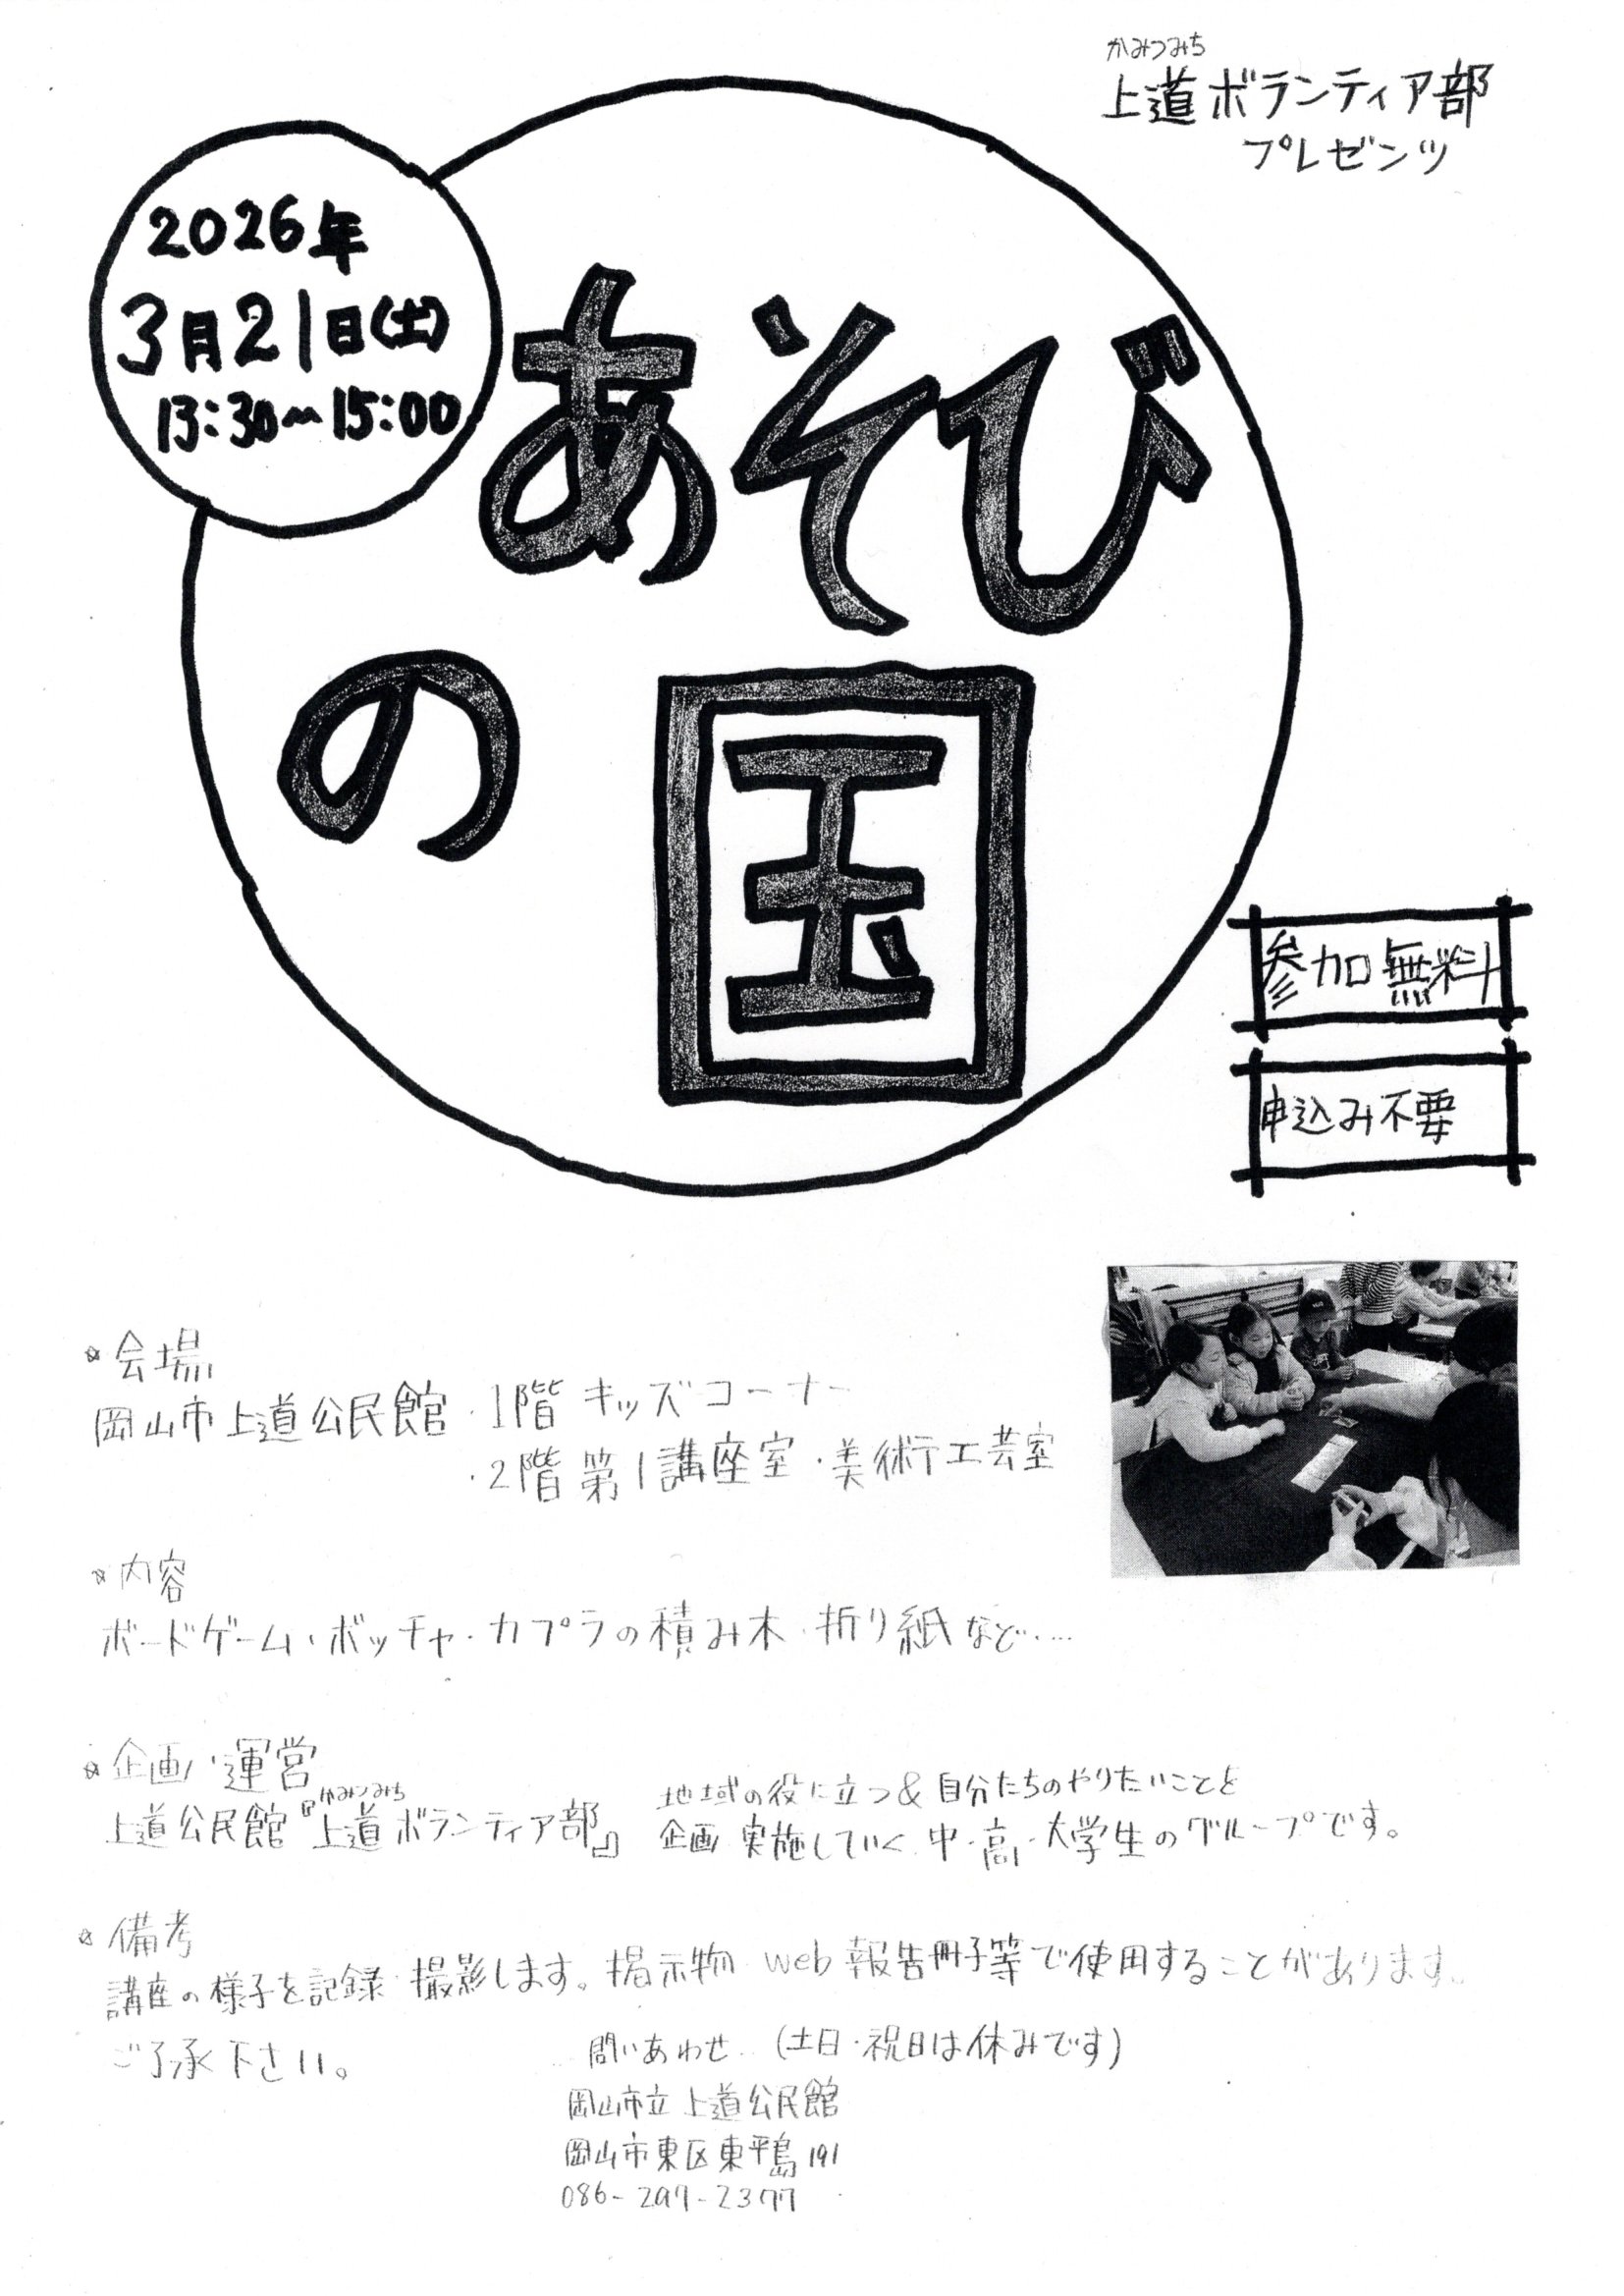 かみつみち
上道ボランティア部
プレゼンツ
2026年
3月21日(土)
13:30〜15:00
あそび
の国
参加無料
申込み不要
☆会場
岡山市上道公民館・1階 キッズコーナー
・2階 第1講座室・美術工芸室
☆内容
ボードゲーム・ボッチャ・カプラの積み木・折り紙など....
☆企画・運営
かみつみち
上道公民館『上道ボランティア部』
地域の役に立つ&自分たちのやりたいことを
企画 実施していく 中・高・大学生のグループです。
☆備考
講座の様子を記録・撮影します。掲示物・web・報告冊子等で使用することがあります。
ご了承下さい。
問いあわせ (土日・祝日は休みです)
岡山市立 上道公民館
岡山市東区東平島 191
086-297-2377